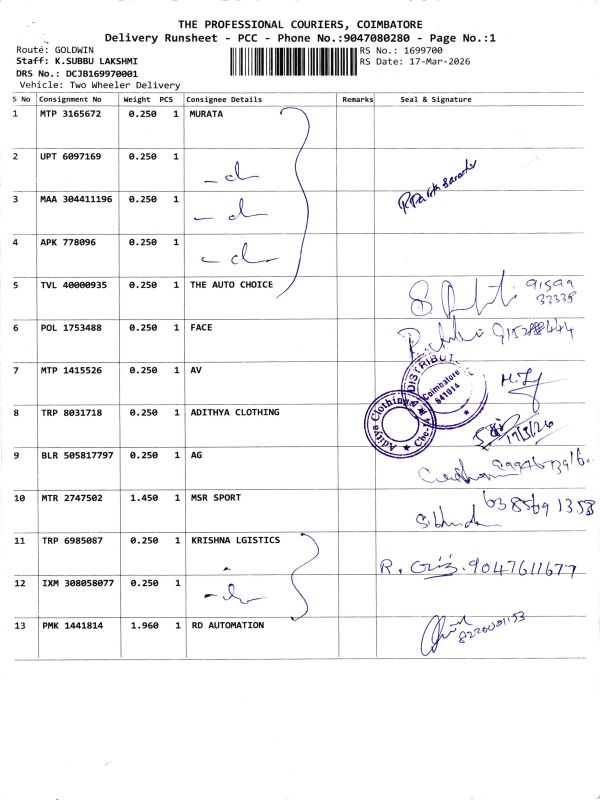 THE PROFESSIONAL COURIERS, COIMBATORE
Delivery Runsheet - PCC - Phone No.:9047080280 - Page No.:1
Route: GOLDWIN
RS No.: 1699700
Staff: K.SUBBU LAKSHMI
RS Date: 17-Mar-2026
DRS No.: DCJB169970001
Vehicle: Two Wheeler Delivery
S No Consignment No Weight PCS Consignee Details Remarks Seal & Signature
1 MTP 3165672 0.250 1 MURATA
2 UPT 6097169 0.250 1
3 MAA 304411196 0.250 1
4 APK 778096 0.250 1
5 TVL 40000935 0.250 1 THE AUTO CHOICE
91599
33338
6 POL 1753488 0.250 1 FACE
7 MTP 1415526 0.250 1 AV
DISTRIBUT
Coimbatore
641014
8 TRP 8031718 0.250 1 ADITHYA CLOTHING
Aditya Clothing
17/3/26
9 BLR 505817797 0.250 1 AG
10 MTR 2747502 1.450 1 MSR SPORT
6385691353
11 TRP 6985087 0.250 1 KRISHNA LGISTICS
R. 9047611677
12 IXM 308058077 0.250 1
13 PMK 1441814 1.960 1 RD AUTOMATION